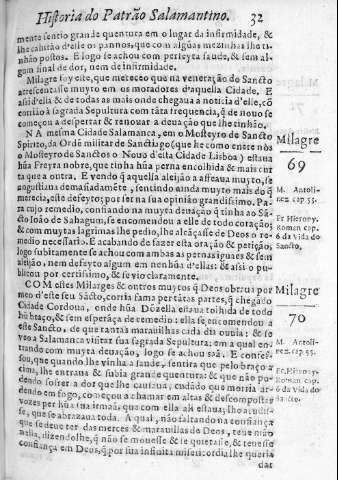 Historia do Patrão Salamantino. 32
mente sentio grande quentura em o lugar da infirmidade, &
lhe cahirão d'elle os pannos, que com algũas mezinhas lhe ti-
nhão postos. E logo se achou com perfeyta saude, & sem al-
gum final de dor, nem de infirmidade.
Milagre foy este, que mereceo que na veneração do Sancto
acrescentasse muyto em os moradores d'aquella Cidade. E
assi d'ella & de todas as mais onde chegaua a noticia d'elle, cõ
continão à sagrada Sepultura com tâta frequencia, q̃ de nouo se
começou a despertar & renovar a devação que lhe tinhão.
NA mesma Cidade Salamanca, em o Mosteyro de Sancto
Spirito, da Ordẽ militar de Sanctiago (que he como entre nòs
o Mosteyro de Sanctos o Nouo d'esta Cidade Lisboa) estaua
hũa Freyra nobre, que tinha hũa perna encolhida & mais cur
ta que a outra. E vendo q̃ aquella aleijão a affeaua muyto, se
angustiaua demasiadamẽte, sentindo ainda muyto mais do q̃
merecia, este defeyto; por ser na sua opinião grandissimo. Pa
ra cujo remedio, confiando na muyta devação q̃ tinha ao Sã-
cto Ioão de Sahagum, se encomendou a elle de todo coração;
& com muytas lagrimas lhe pedio, lhe alcãçasse de Deos o re-
medio necessario. E acabando de fazer esta oração & petição,
logo subitamente se achou com ambas as pernas iguaes & sem
aleijão, nem defeyto algum em nenhũa d'ellas: & assi o pu-
blicou por certissimo, & se vio claramente.
COM estes Milagres & outros muytos q̃ Deos obraua por
meo d'este seu Sãcto, corria fama per tâtas partes, q̃ chegãdo
à Cidade Cordoua, onde hũa Dõzella estaua tolhida de todo
hũ braço, & sem esperãça de remedio: ella se encomendou a
este Sancto, de que tantas marauilhas cada dia ouuia: & se
veo a Salamanca visitar sua sagrada Sepultura; em a qual en-
trando com muyta devação, logo se achou saã. E confes-
sou, que quando lhe vinha a saude, sentira que pelo braço a
cima, lhe entraua & subia grande quentura: & que não po-
dendo sofrer a dor que lhe causaua, cuidãdo que morria ar-
dendo em fogo, começou a chamar em altas & descompostas
vozes per hũa sua irmaã, qua com ella ali estaua; lhe acudis-
se, que se abrazaua toda. A qual, não faltando na confiança
que se deue ter das merces & marauilhas de Deos, teue mão
nella, dizendolhe, q̃ não se mouesse & se quietasse, & teuesse
confiança em Deos, q̃ por sua infinita misericordia lhe queria
dar
Milagre
69
M. Antoli-
nez. cap. 55.
Fr. Hierony.
Romen cap.
6 da Vida do
Sancto.
Milagre
70
M. Antoli-
nez. cap. 55.
Fr. Hieron.
Romen cap.
6 da Vida do
Sancto.